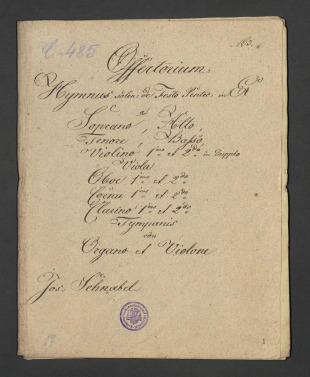 C-485
163.
Offertorium
Hymnus solen: de Festo Pentec. in
Soprano, Alto,
Tenore, Basso,
Violino 1mo et 2do in Dopplo
Viola
Oboe 1mo et 2do
Cornu 1mo et 2do
Clarino 1mo et 2do
Tympanis
con
Organo et Violone
Jos. Schnabel.
1